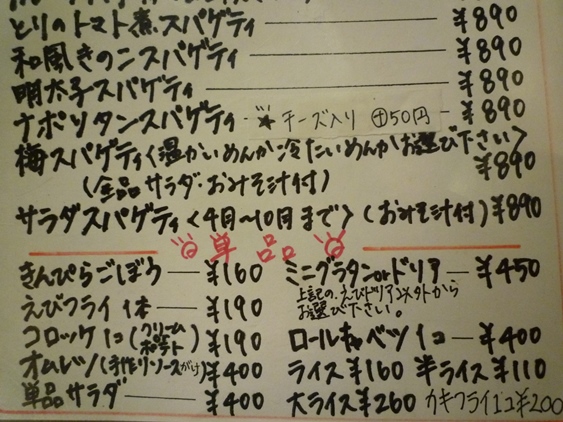 とりのトマト煮スパゲティ ¥890
和風きのこスパゲティ ¥890
明太子スパゲティ ¥890
ナポリタンスパゲティ ★チーズ入り ⊕50円 ¥890
梅スパゲティ〈温かいめんか冷たいめんかお選び下さい〉
(全品サラダ・おみそ汁付) ¥890
サラダスパゲティ〈4月~10月まで〉(おみそ汁付) ¥890
単品
きんぴらごぼう ¥160
えびフライ1本 ¥190
コロッケ1コ(クリーム ポテト) ¥190
オムレツ(手作りソースがけ) ¥400
単品サラダ ¥400
ミニグラタンorドリア ¥450
上記の、えびドリア以外から
お選び下さい。
ロールキャベツ1コ ¥400
ライス¥160 半ライス¥110
大ライス¥260 カキフライ1コ¥200